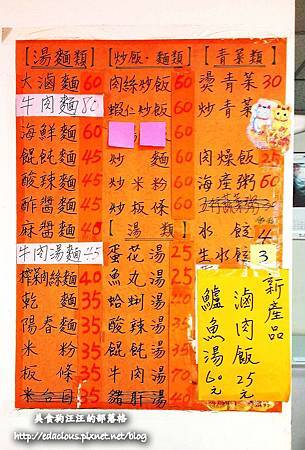 【湯麵類】
大滷麵 60
牛肉麵 80
海鮮麵 60
餛飩麵 45
酸辣麵 45
酢醬麵 45
麻醬麵 40
牛肉湯麵 45
榨菜肉絲麵 40
乾麵 35
陽春麵 35
米粉 35
板條 35
米台目 35
【炒飯、麵類】
肉絲炒飯 60
蝦仁炒飯 60
炒麵 60
炒米粉 60
炒板條 60
【湯類】
蛋花湯 25
魚丸湯 25
蛤蜊湯
酸辣湯
餛飩湯
牛肉湯 70
豬肝湯
【青菜類】
燙青菜 30
炒青菜
肉燥飯 25
海產粥 60
水餃 4
生水餃 3
新產品
滷肉飯 25元
鱸魚湯 60元
美食狗汪汪的部落格
http://edacious.pixnet.net/blog